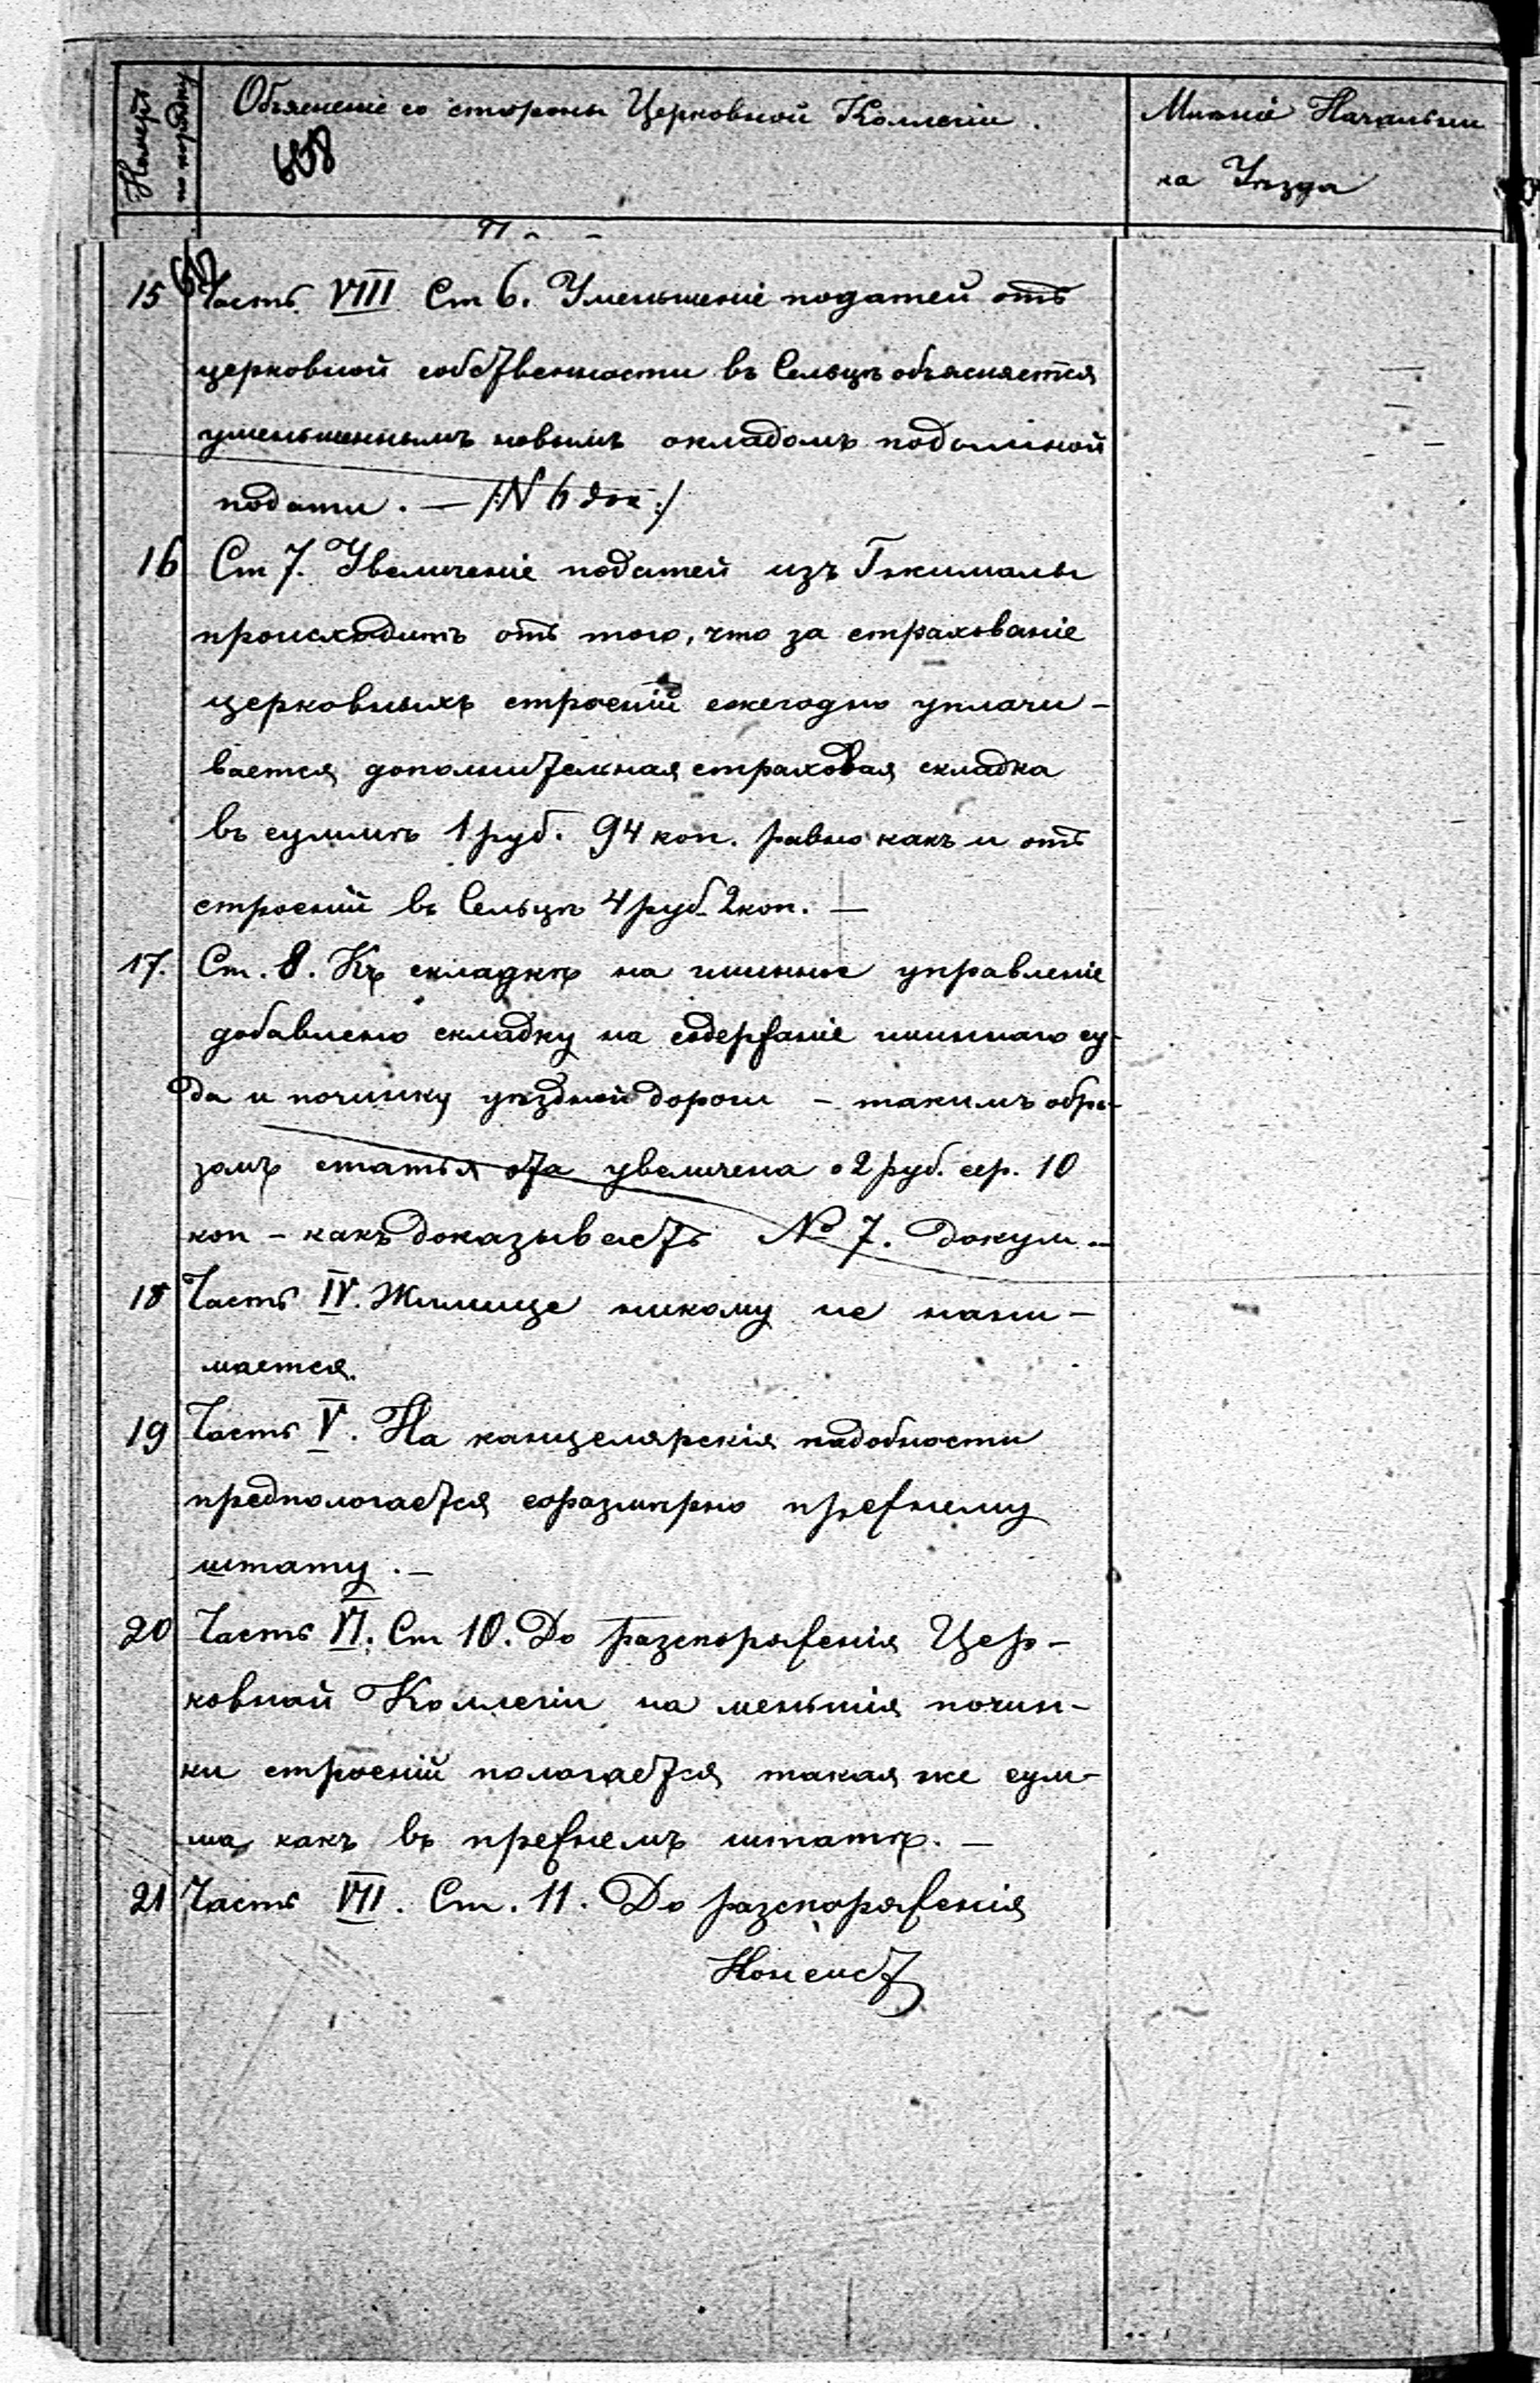 Номеръ
по порядку
Объясненіе со стороны Церковной Коллегіи.
Мнѣніе Начальни-
ка Уѣзда
658
15 Часть VIII Ст 6. Уменьшеніе податей отъ
церковной собственности въ Сельцѣ объясняется
уменьшеннымъ новымъ окладомъ подымной
подати. — /:N 6 док:/
16 Ст 7. Увеличеніе податей изъ
происходитъ отъ того, что за страхованіе
церковныхъ строеній ежегодно уплачи-
вается дополнительная страховая складка
въ суммѣ 1 руб. 94 коп. равно какъ и отъ
строеній въ Сельцѣ 4 руб 2 коп. —
17. Ст. 8. Къ складкѣ на гминное управленіе
добавлено складку на содержаніе гминнаго су-
да и починку уѣздной дороги – такимъ обра-
зомъ статья эта увеличена о 2 руб. сер. 10
коп – какъ доказываетъ № 7. докум.–
18 Часть IV. Жилище никому не нани-
мается.
19 Часть V. На канцелярскія надобности
предпологается соразмѣрно прежнему
штату. —
20 Часть VI. Ст 10. До разспоряженія Цер-
ковной Коллегіи на меньшія почин-
ки строеній пологается такая же сум-
ма, какъ въ прежнемъ штатѣ. —
21 Часть VII. Ст. 11. До разспоряженія